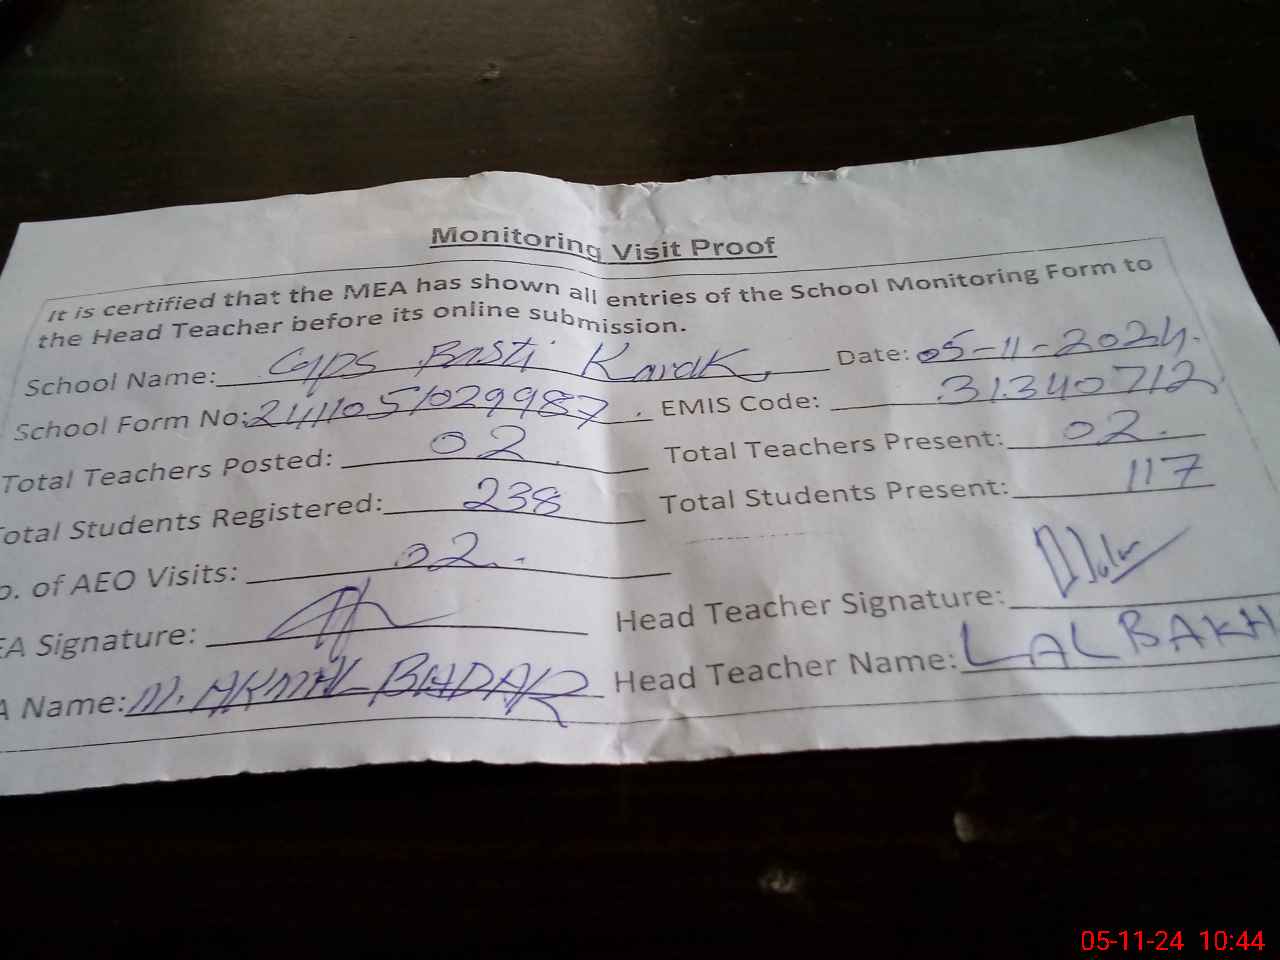 Monitoring Visit Proof
It is certified that the MEA has shown all entries of the School Monitoring Form to
the Head Teacher before its online submission.
School Name: Cgps Basti Karak Date: 05-11-2024.
School Form No: EMIS Code: 31340712
Total Teachers Posted: 02 Total Teachers Present: 02.
otal Students Registered: 238 Total Students Present: 117
o. of AEO Visits: 02.
EA Signature: Head Teacher Signature:
A Name: M. AKMAL BHADAR Head Teacher Name: LAL BAKH
05-11-24 10:44